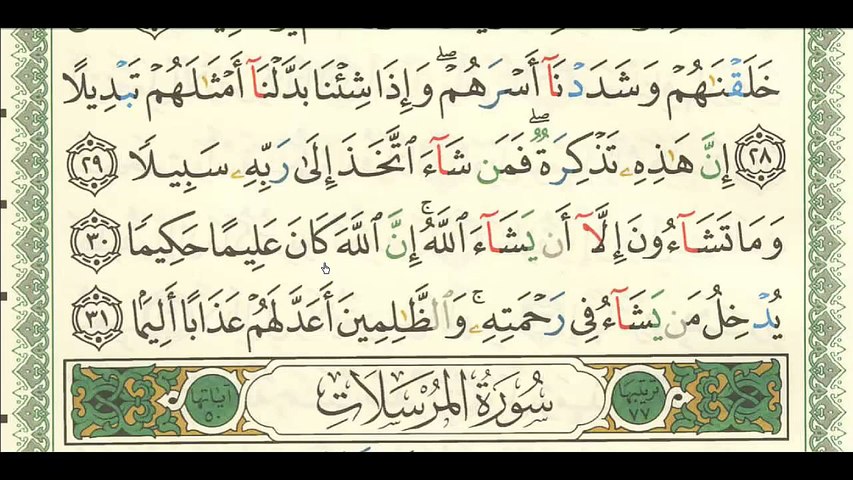 خَلَقْنَٰهُمْ وَشَدَدْنَآ أَسْرَهُمْ ۖ وَإِذَا شِئْنَا بَدَّلْنَآ أَمْثَٰلَهُمْ تَبْدِيلًا
٢٨ إِنَّ هَٰذِهِۦ تَذْكِرَةٌ ۖ فَمَن شَآءَ ٱتَّخَذَ إِلَىٰ رَبِّهِۦ سَبِيلًا ٢٩
وَمَا تَشَآءُونَ إِلَّآ أَن يَشَآءَ ٱللَّهُ ۚ إِنَّ ٱللَّهَ كَانَ عَلِيمًا حَكِيمًا ٣٠
يُدْخِلُ مَن يَشَآءُ فِى رَحْمَتِهِۦ ۚ وَٱلظَّٰلِمِينَ أَعَدَّ لَهُمْ عَذَابًا أَلِيمًۢا ٣١
ترتيبها ٧٧ سُورَةُ المُرْسَلَاتِ آياتها ٥٠